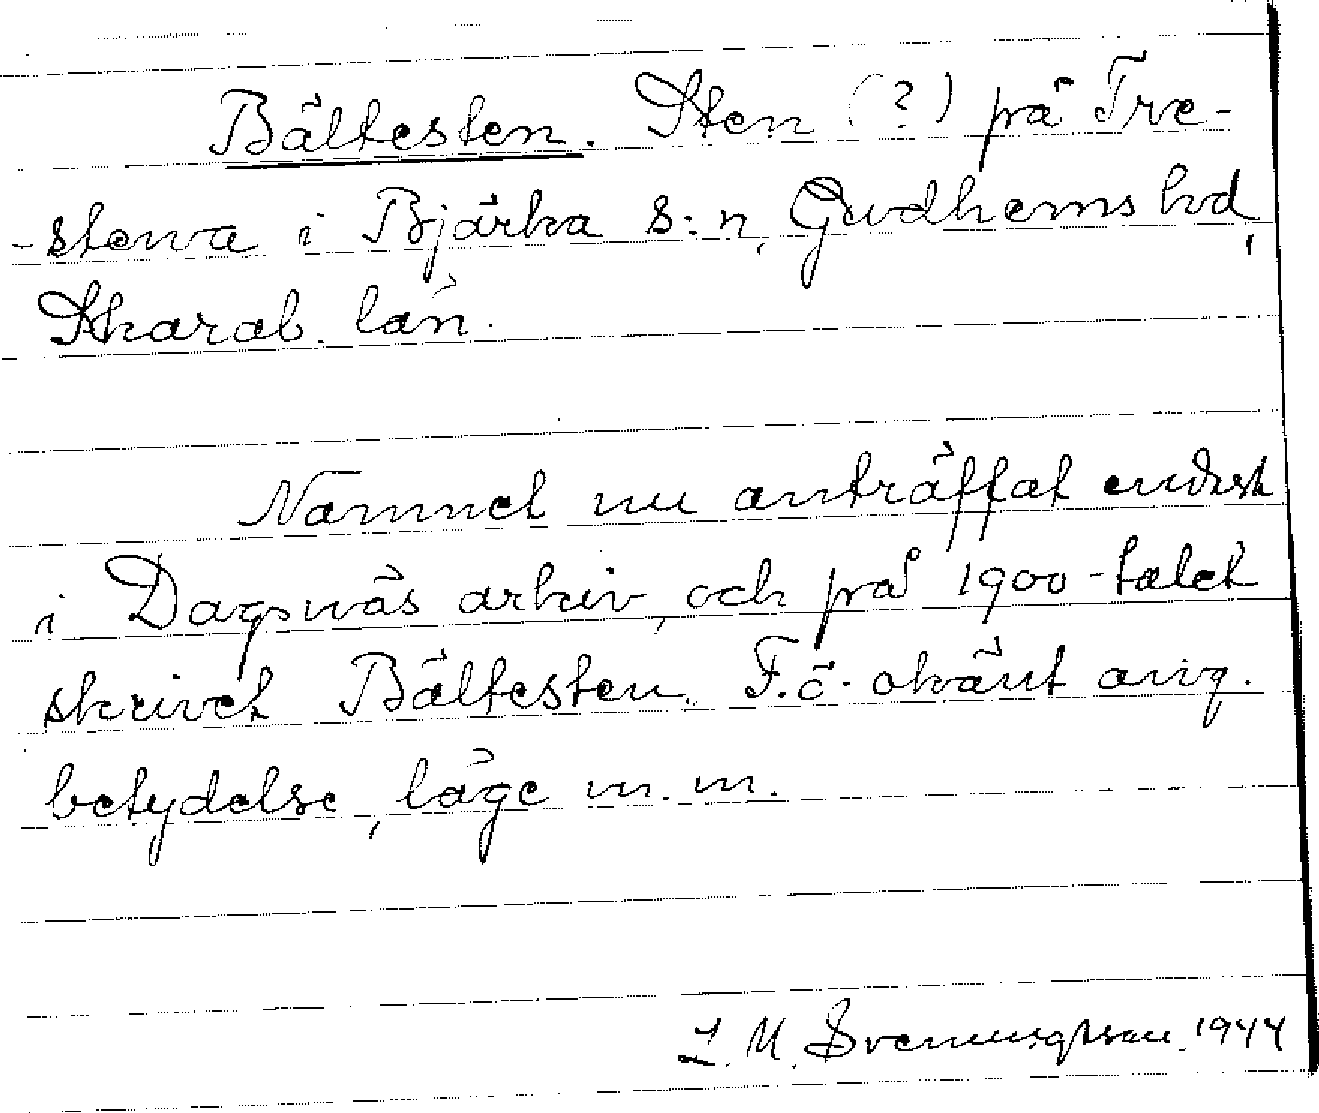 Bältesten. Sten (?) på Tre-
-stena i Bjärka s:n, Gudhems hd,
Skarab. län.
Namnet nu anträffat endast
i Dagsnäs arkiv, och på 1900-talet
skrivet Bältesten. F.ö. okänt ang.
betydelse, läge m.m.
L. M. Svenungsson 1944